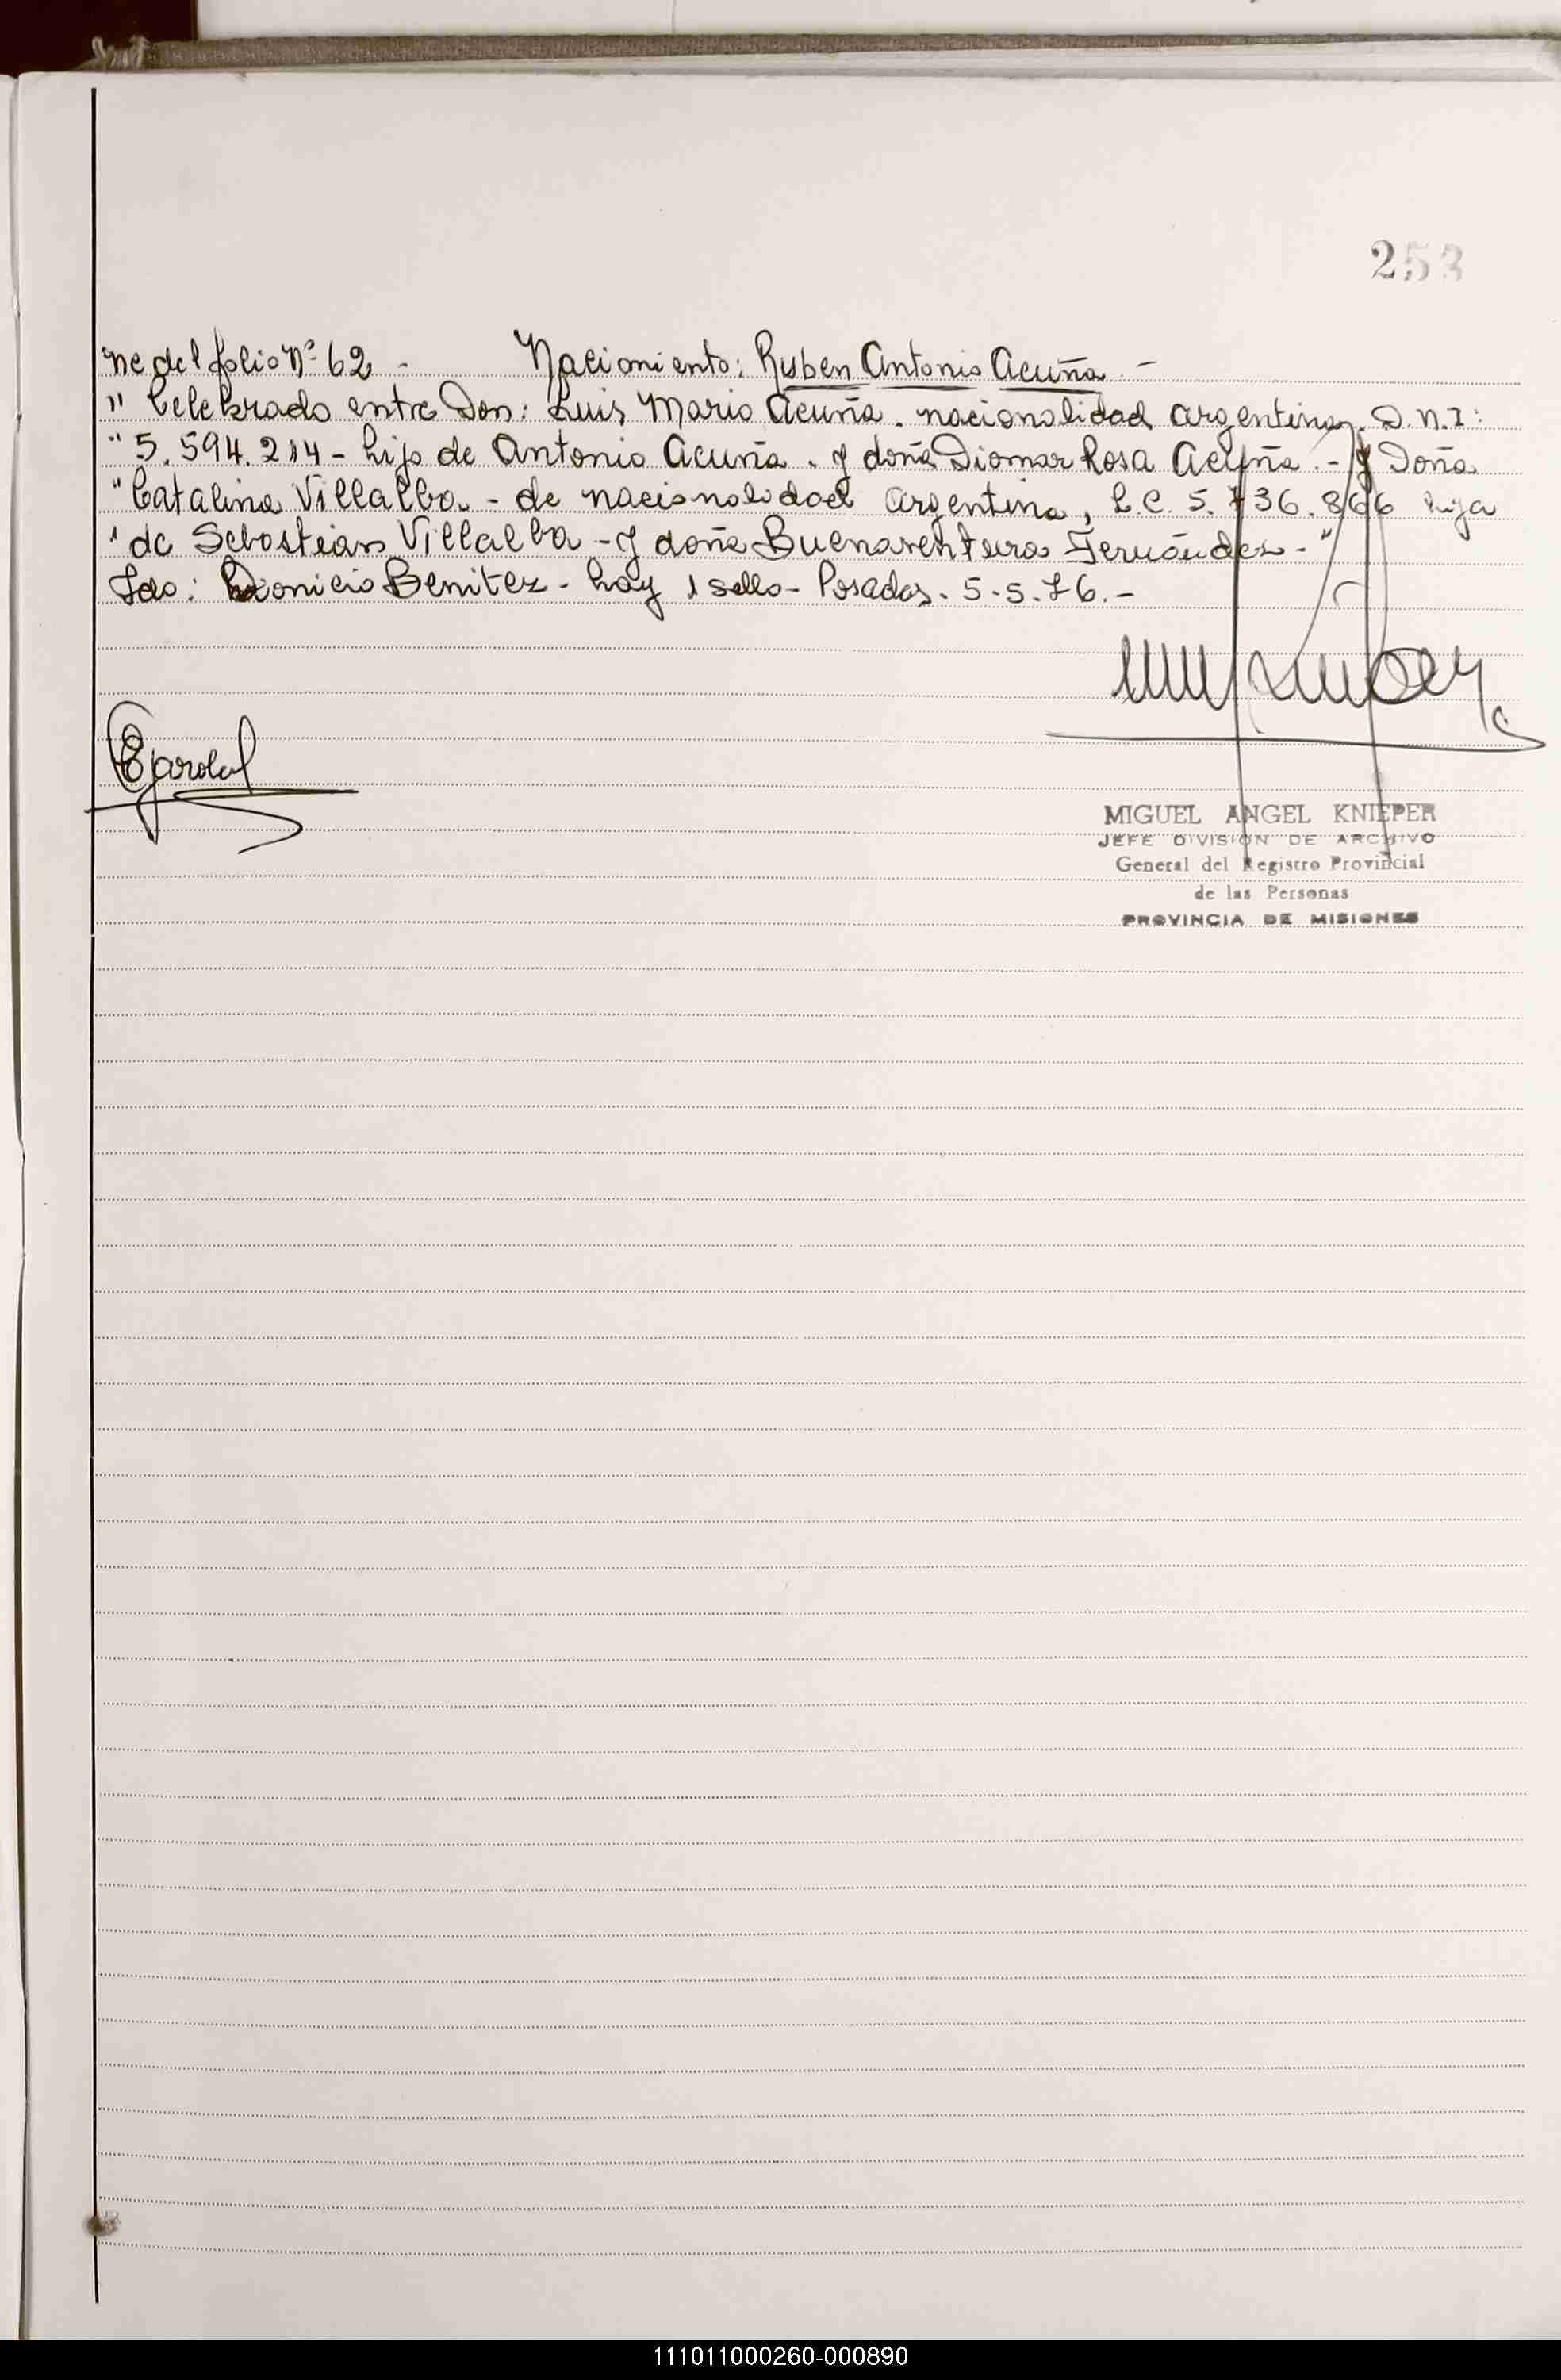 253
ne del folio Nº 62 - Nacimiento: Ruben Antonio Acuña -
" Celebrado entre Don: Luis Mario Acuña. nacionalidad argentina. D.N.I:
" 5.594.214 - hijo de Antonio Acuña. y doña Diomar Rosa Acuña. - y Doña
" Catalina Villalba. - de nacionalidad argentina, L.C. 5.736.866 hija
" de Sebastian Villalba - y doña Buenaventura Fernández - "
Fdo: Dionicio Benitez - hay 1 sello - Posadas. 5-5-76. -
MIGUEL ANGEL KNIEPER
JEFE DIVISION DE ARCHIVO
General del Registro Provincial
de las Personas
PROVINCIA DE MISIONES
111011000260-000890